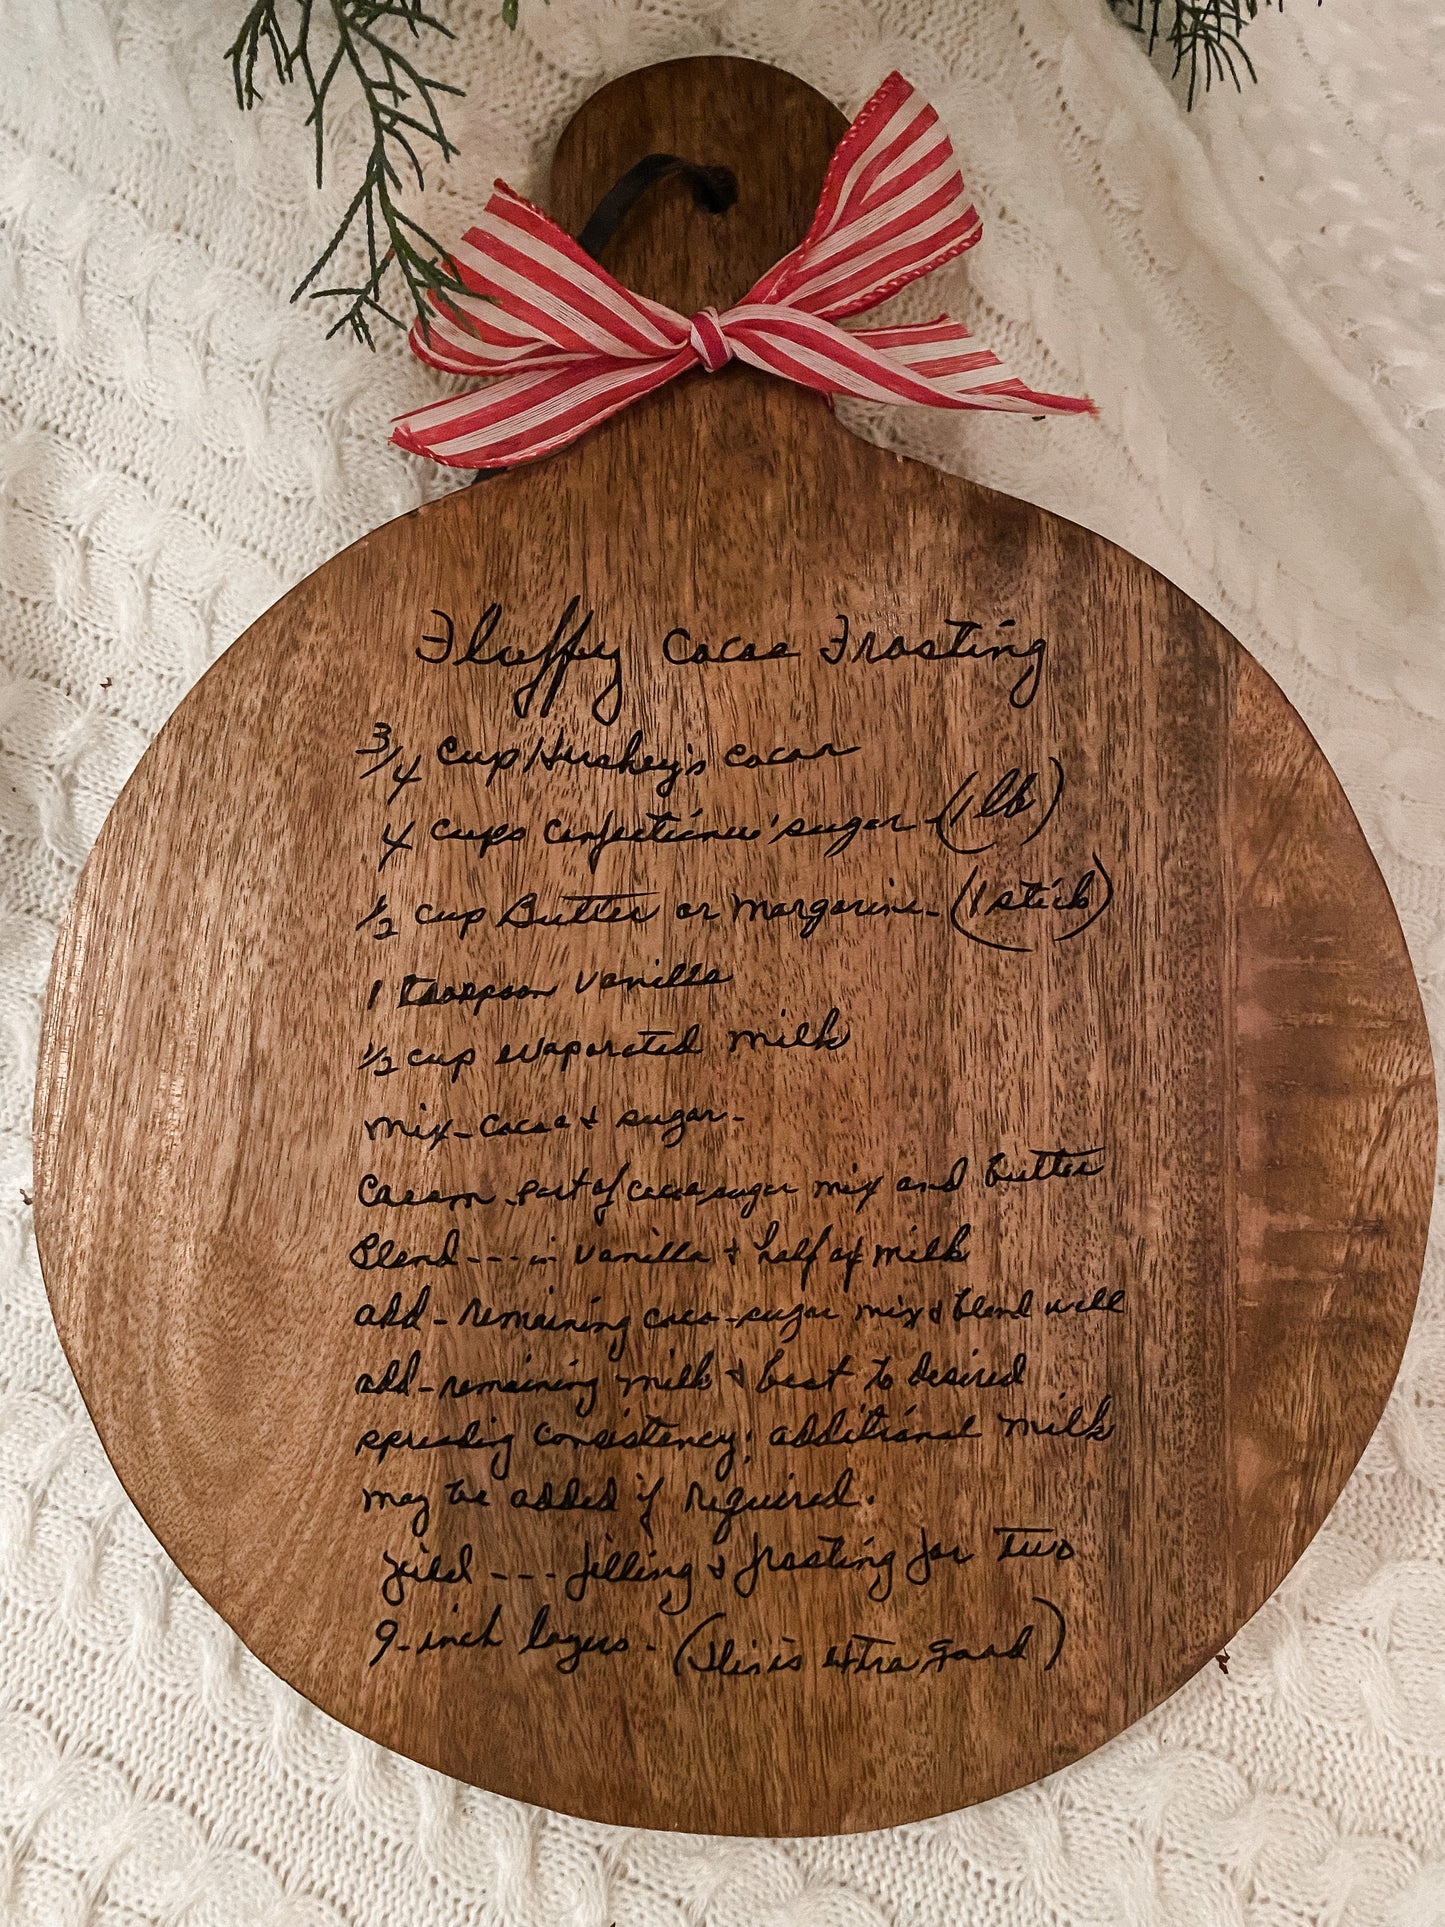 Fluffy Cocoa Frosting
3/4 cup Hershey's cocoa
4 cups Confectioners' sugar (1 lb)
1/2 cup Butter or margarine - (1 stick)
1 teaspoon vanilla
1/2 cup evaporated milk
mix - cocoa & sugar -
Cream - part of cocoa sugar mix and butter
Blend - - - in vanilla & half of milk
add - remaining coco - sugar mix & blend well
add - remaining milk & beat to desired
spreading consistency; additional milk
may be added if required.
yield - - - filling & frosting for two
9 - inch layers - (This is extra good)